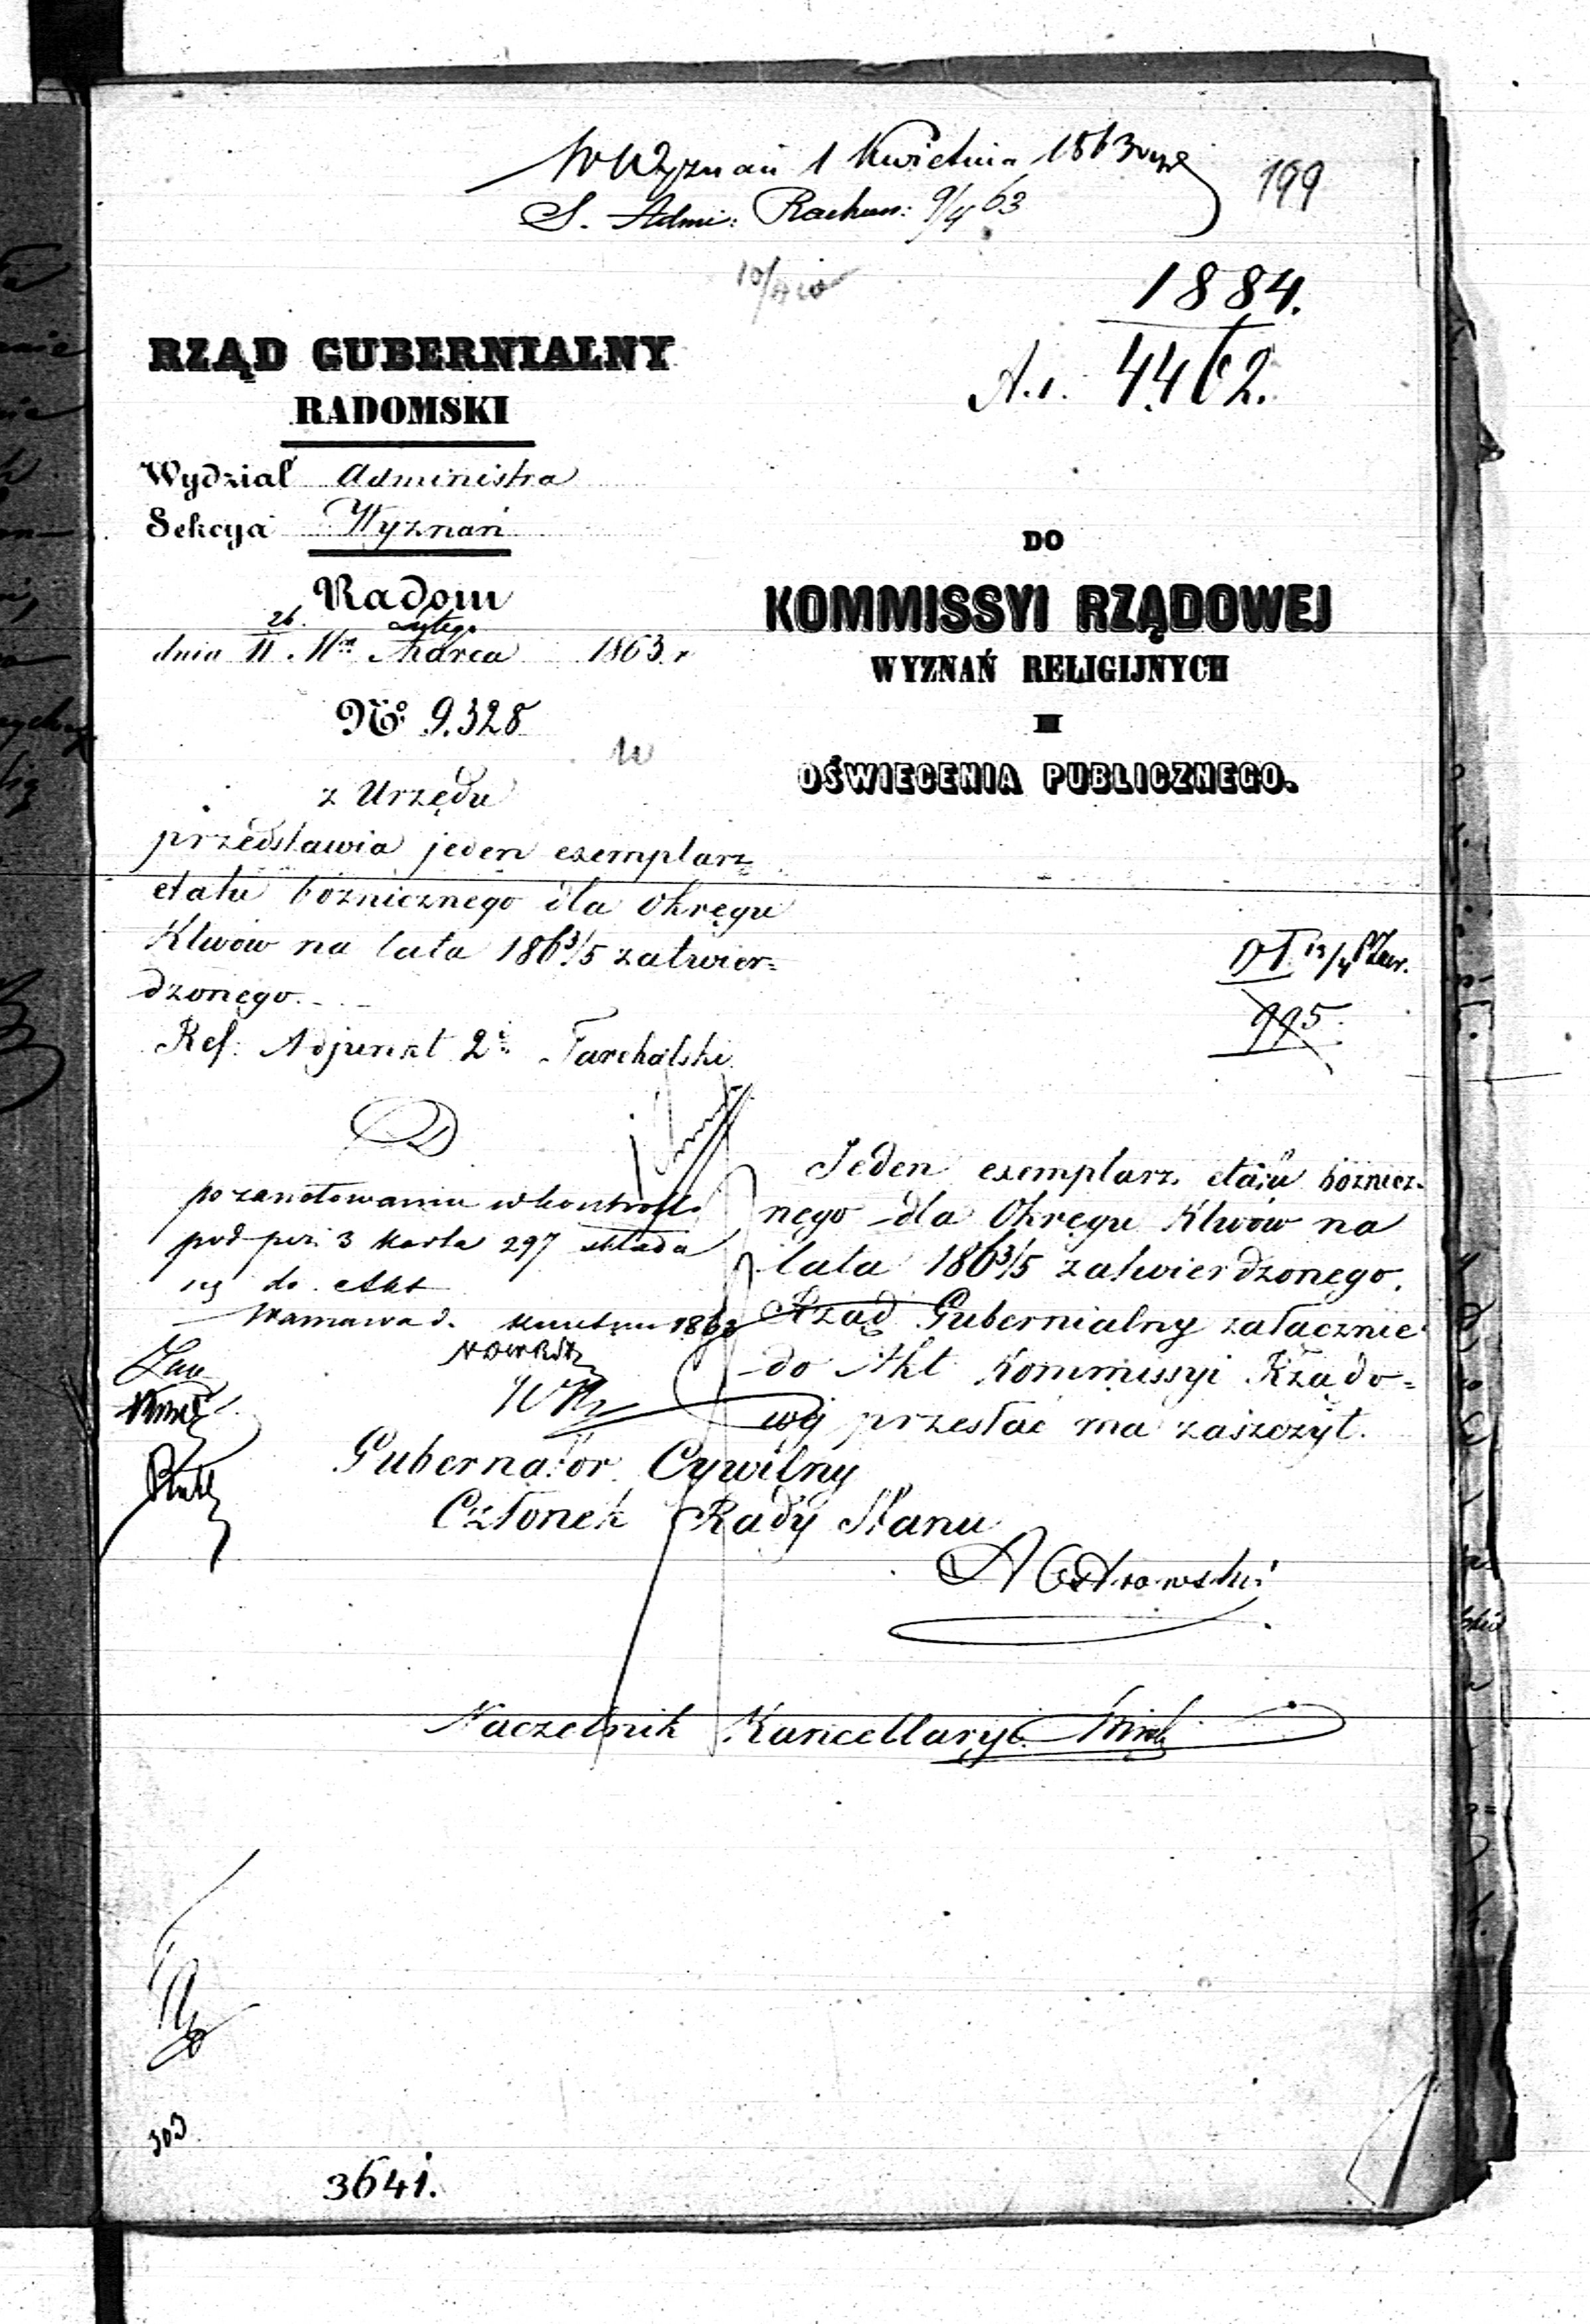 W Wyznań 1 Kwietnia 1863
S. Admi: Rachun: 9/4 63
199
10/4
1884.
A. 1. 4462.
RZĄD GUBERNIALNY
RADOMSKI
Wydział Administra
Sekcya Wyznań
Radom
26. Lutego
dnia 11 Mca Marca 1863 r
No 9.328
z Urzędu
przedstawia jeden exemplarz
etatu bożnicznego dla Okręgu
Klwów na lata 1863/5 zatwier=
dzonego.
Ref: Adjunkt 2i Tarchalski
DO
KOMMISSYI RZĄDOWEJ
WYZNAŃ RELIGIJNYCH
I
OŚWIECENIA PUBLICZNEGO.
DT 13/4
995.
Jeden exemplarz etatu bożnicz=
nego dla Okręgu Klwów na
lata 1863/5 zatwierdzonego,
Rząd Gubernialny załącznie
do Akt Kommissyi Rządo=
wej przesłać ma zaszczyt.
po zanotowaniu w kontrolli
pod poz. 3 karta 297 składa
się do Akt
Warszawa d. Kwietnia 1863
Gubernator Cywilny
Członek Rady Stanu
A Ostrowski
Naczelnik Kancellaryi
303
3641.